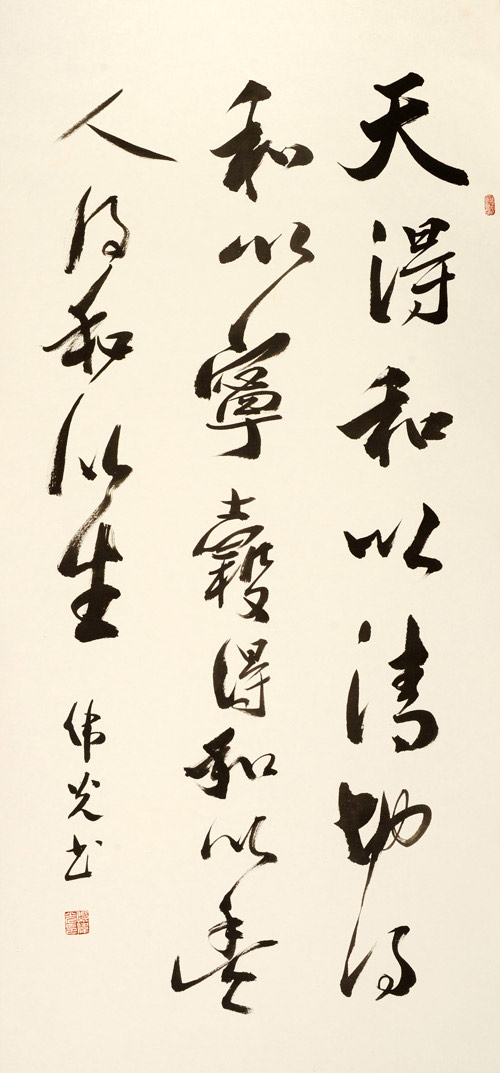 天得和以清地得
和以寧穀得和以盈
人得和以生
伟光书